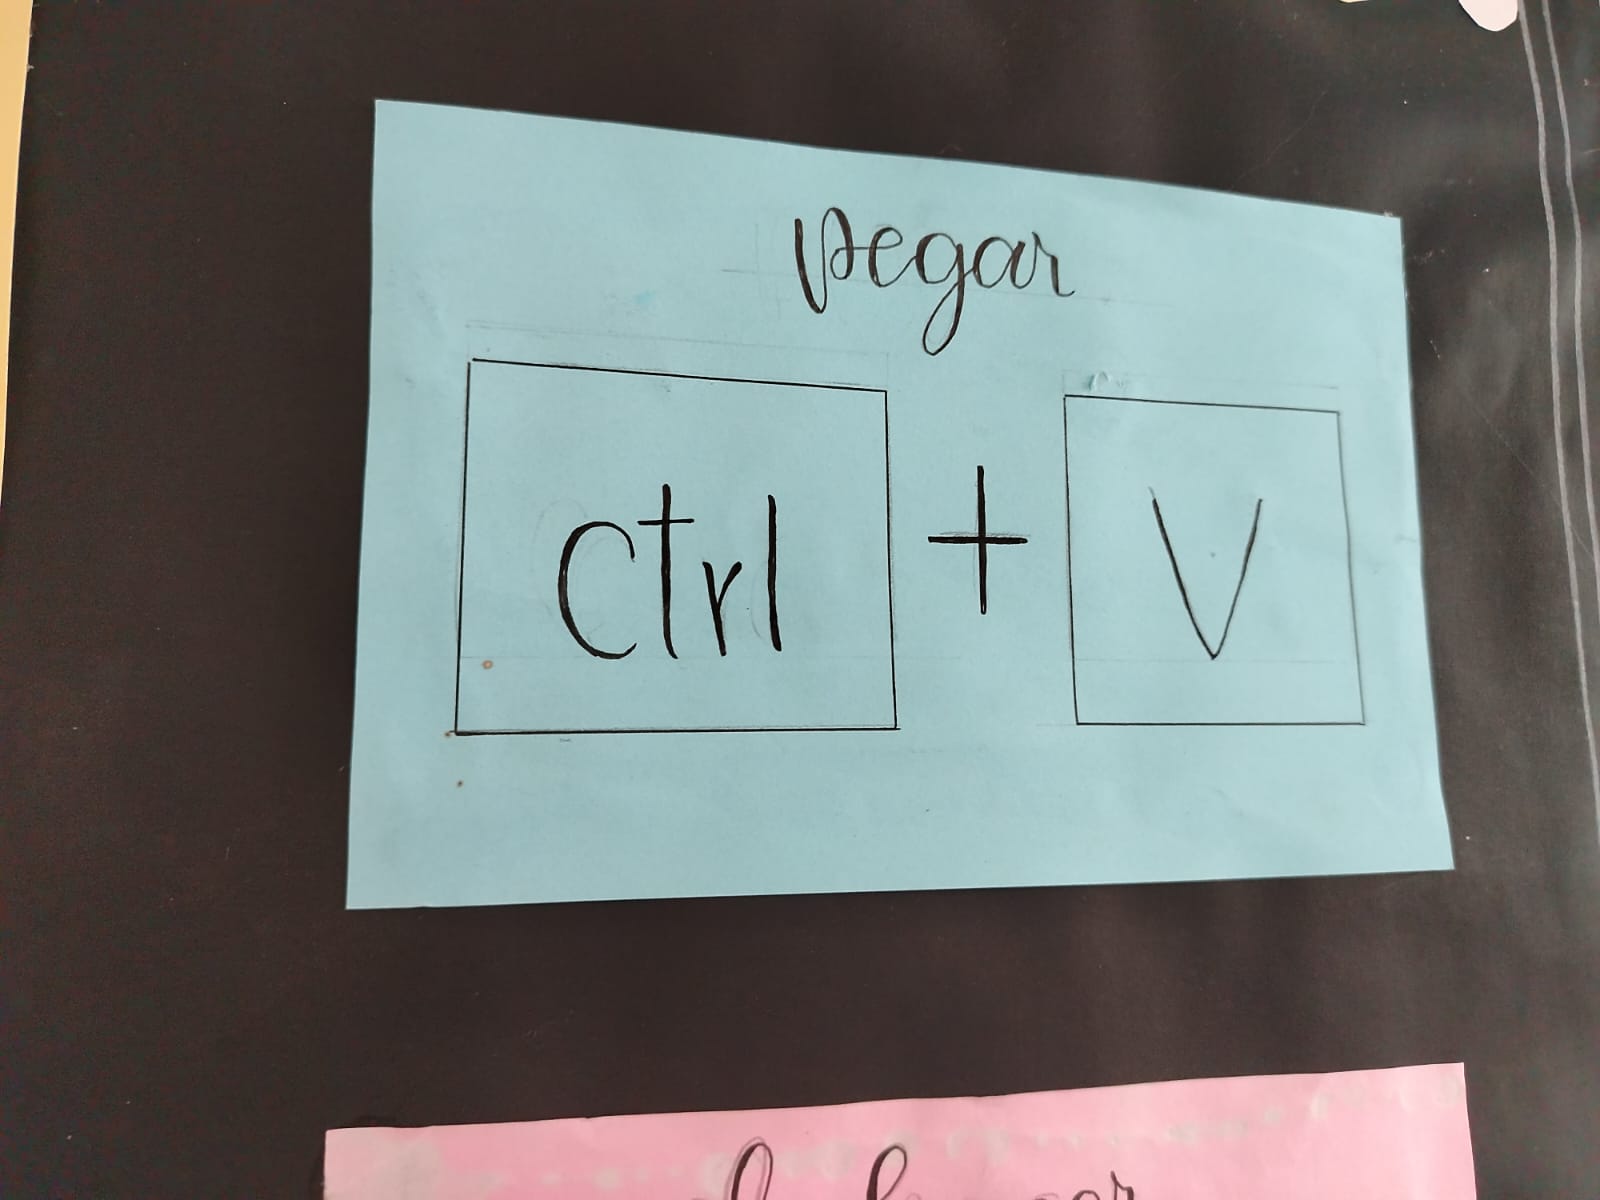 pegar
Ctrl + V